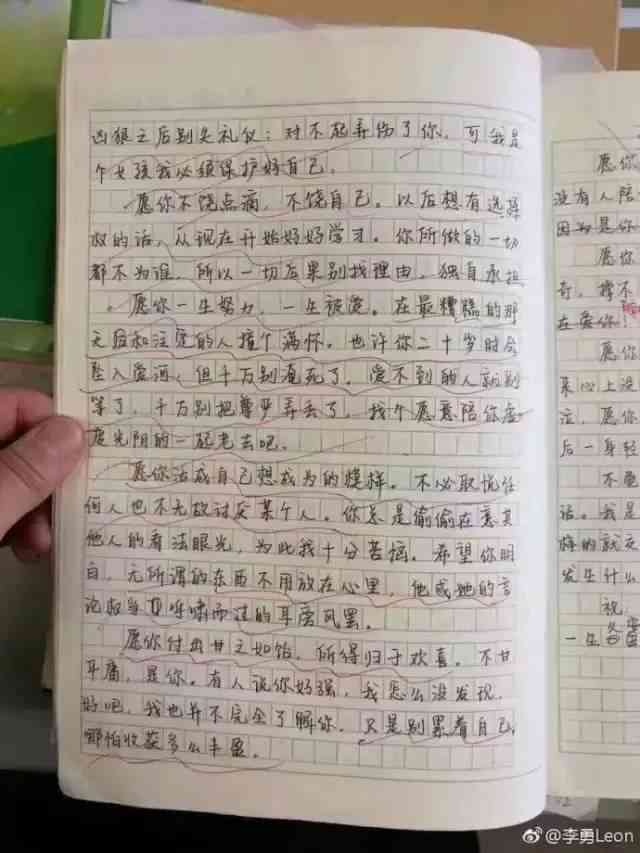 凶狠之后别失礼仪：对不起弄伤了你，可我是
个女孩我必须保护好自己。
愿你不饶点滴，不饶自己。以后想有选择
权的话，从现在开始好好学习。你所做的一切
都不为谁，所以一切后果别找理由，独自承担。
愿你一生努力，一生被爱。在最糟糕的那
天后和注定的人撞个满怀。也许你二十岁时会
坠入爱河，但千万别淹死了，爱不到的人就别
等了，千万别把尊严弄丢了，找个愿意陪你虚
度光阴的一起老去吧。
愿你活成自己想成为的模样。不必取悦任
何人也不无故讨厌某个人。你总是偷偷在意其
他人的看法眼光，为此我十分苦恼。希望你明
白，无所谓的东西不用放在心里，他或她的言
论权当呼啸而过的耳旁风罢。
愿你付出甘之如饴，所得归于欢喜。不甘
平庸，是你。有人说你好强，我怎么没发现，
好吧，我也并不完全了解你。只是别累着自己，
哪怕收获多么丰盈。
愿你
没有人陪
因为是你
愿你
奇，撑不
在爱你！
愿你
来心上
泣，愿你
后一身轻
不
话。我是
悔的就交
发生什么
祝
一生
@李勇Leon